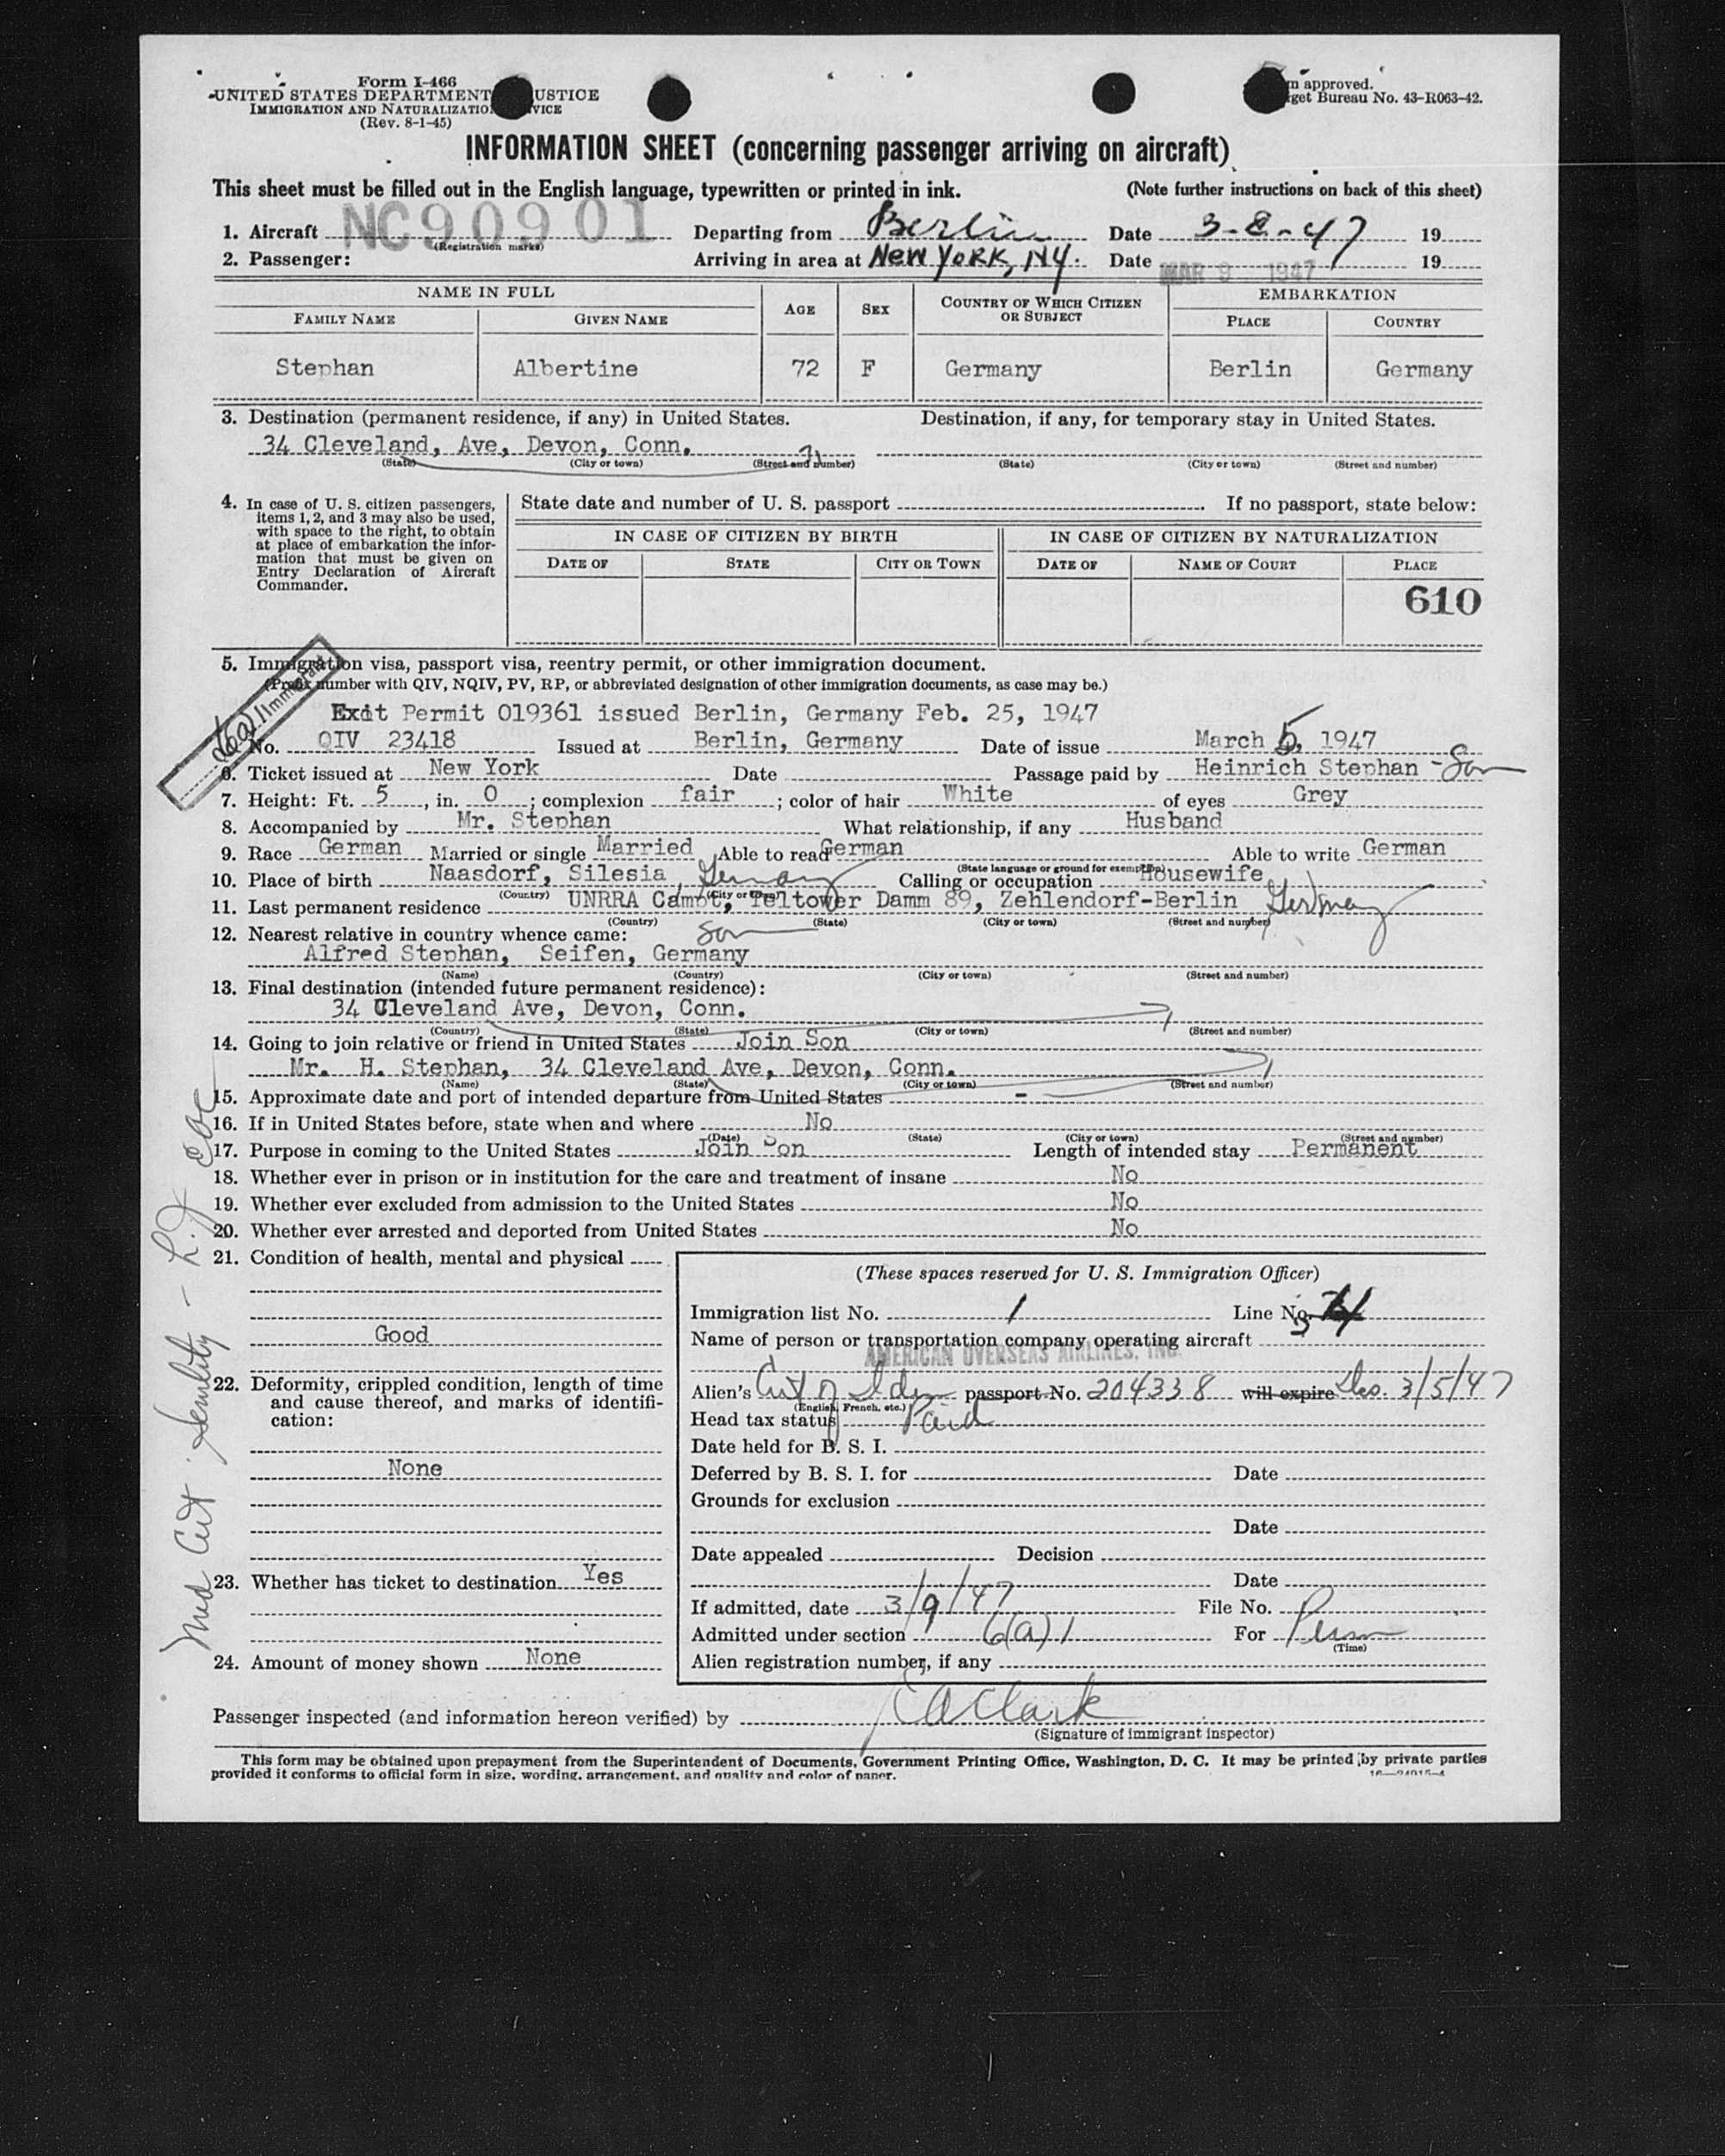 Form I-466
UNITED STATES DEPARTMENT USTICE
IMMIGRATION AND NATURALIZATIO VICE
(Rev. 8-1-45)
m approved.
get Bureau No. 43-R063-42.
INFORMATION SHEET (concerning passenger arriving on aircraft)
This sheet must be filled out in the English language, typewritten or printed in ink. (Note further instructions on back of this sheet)
1. Aircraft NC90901 Departing from Berlin Date 3-8-47 19
(Registration marks)
2. Passenger: Arriving in area at New York, NY. Date MAR 9 1947 19
NAME IN FULL AGE SEX COUNTRY OF WHICH CITIZEN OR SUBJECT EMBARKATION
FAMILY NAME GIVEN NAME PLACE COUNTRY
Stephan Albertine 72 F Germany Berlin Germany
3. Destination (permanent residence, if any) in United States. Destination, if any, for temporary stay in United States.
34 Cleveland, Ave, Devon, Conn.
(State) (City or town) (Street and number) (State) (City or town) (Street and number)
4. In case of U. S. citizen passengers, items 1, 2, and 3 may also be used, with space to the right, to obtain at place of embarkation the information that must be given on Entry Declaration of Aircraft Commander.
State date and number of U. S. passport If no passport, state below:
IN CASE OF CITIZEN BY BIRTH IN CASE OF CITIZEN BY NATURALIZATION
DATE OF STATE CITY OR TOWN DATE OF NAME OF COURT PLACE
610
5. Immigration visa, passport visa, reentry permit, or other immigration document.
(Prefix number with QIV, NQIV, PV, RP, or abbreviated designation of other immigration documents, as case may be.)
Exit Permit 019361 issued Berlin, Germany Feb. 25, 1947
No. QIV 23418 Issued at Berlin, Germany Date of issue March 5, 1947
6. Ticket issued at New York Date Passage paid by Heinrich Stephan - Son
7. Height: Ft. 5, in. 0; complexion fair; color of hair White of eyes Grey
8. Accompanied by Mr. Stephan What relationship, if any Husband
9. Race German Married or single Married Able to read German Able to write German
(State language or ground for exemption)
10. Place of birth Naasdorf, Silesia, Germany Calling or occupation Housewife
(Country) (City or town)
11. Last permanent residence UNRRA Camp, Teltower Damm 89, Zehlendorf-Berlin Germany
(Country) (State) (City or town) (Street and number)
12. Nearest relative in country whence came: Son
Alfred Stephan, Seifen, Germany
(Name) (Country) (City or town) (Street and number)
13. Final destination (intended future permanent residence):
34 Cleveland Ave, Devon, Conn.
(Country) (State) (City or town) (Street and number)
14. Going to join relative or friend in United States Join Son
Mr. H. Stephan, 34 Cleveland Ave, Devon, Conn.
(Name) (State) (City or town) (Street and number)
15. Approximate date and port of intended departure from United States -
16. If in United States before, state when and where No
(Date) (State) (City or town) (Street and number)
17. Purpose in coming to the United States Join Son Length of intended stay Permanent
18. Whether ever in prison or in institution for the care and treatment of insane No
19. Whether ever excluded from admission to the United States No
20. Whether ever arrested and deported from United States No
21. Condition of health, mental and physical
Good
22. Deformity, crippled condition, length of time and cause thereof, and marks of identification:
None
23. Whether has ticket to destination Yes
24. Amount of money shown None
Med Cert Senility -
(These spaces reserved for U. S. Immigration Officer)
Immigration list No. 1 Line No. 3
Name of person or transportation company operating aircraft
AMERICAN OVERSEAS AIRLINES, INC.
Alien's Cert of Iden passport No. 204338 will expire Iss. 3/5/47
(English, French, etc.)
Head tax status Paid
Date held for B. S. I.
Deferred by B. S. I. for Date
Grounds for exclusion
Date
Date appealed Decision
Date
If admitted, date 3/9/47 File No.
Admitted under section 6(a)1 For Perm
(Time)
Alien registration number, if any
Passenger inspected (and information hereon verified) by Clark
(Signature of immigrant inspector)
This form may be obtained upon prepayment from the Superintendent of Documents, Government Printing Office, Washington, D. C. It may be printed by private parties
provided it conforms to official form in size, wording, arrangement, and quality and color of paper.